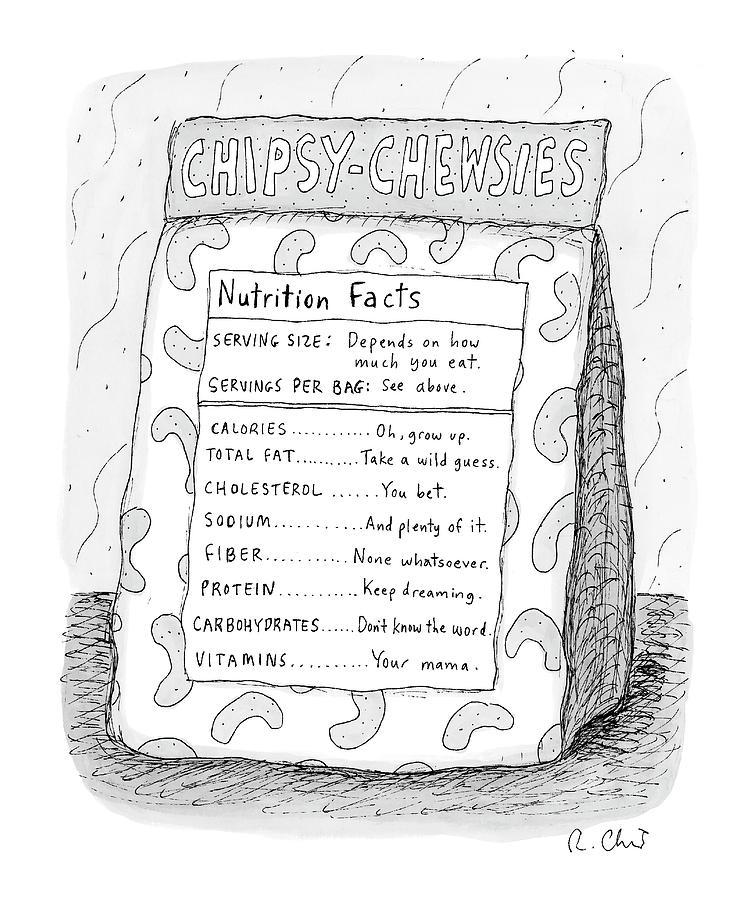 CHIPSY-CHEWSIES
Nutrition Facts
SERVING SIZE: Depends on how
much you eat.
SERVINGS PER BAG: See above.
CALORIES........... Oh, grow up.
TOTAL FAT...........Take a wild guess.
CHOLESTEROL ......You bet.
SODIUM...........And plenty of it.
FIBER........... None whatsoever.
PROTEIN.......... Keep dreaming.
CARBOHYDRATES......Don't know the word.
VITAMINS..........Your mama.
R. Chst